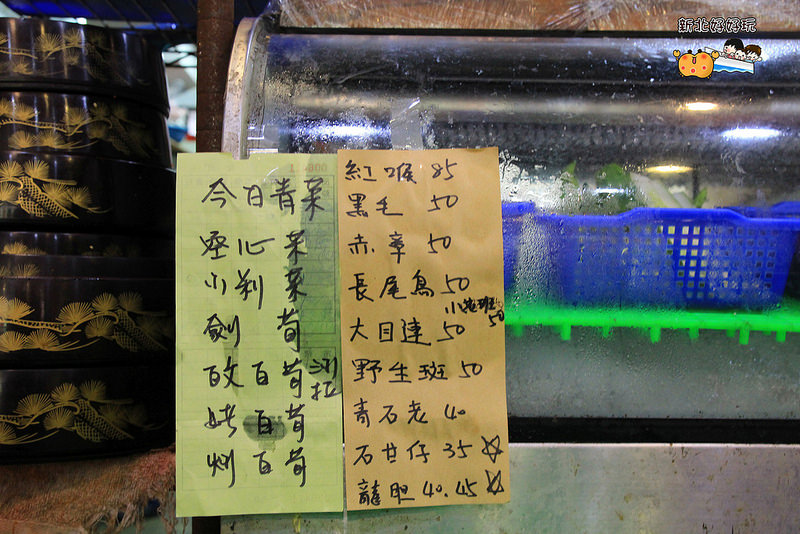 新北好好玩
今日青菜
空心菜
小刹菜
劍筍
改百荀 沙拉
烤百荀
炒百荀
紅喉 85
黑毛 50
赤宰 50
長尾鳥 50
小花班 50
大目連 50
野生斑 50
青石老 40
石甘仔 35 ☆
龍胆 40.45 ☆